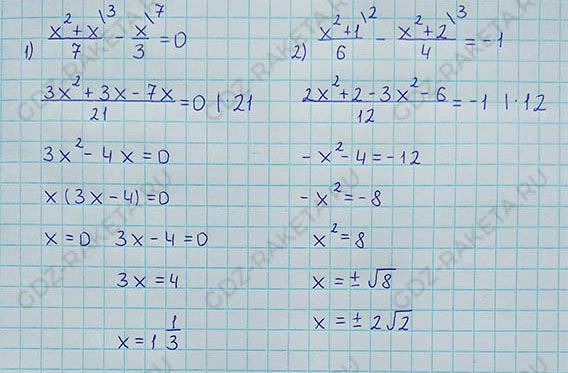 1) (x² + x)\3 / 7 - x\7 / 3 = 0
(3x² + 3x - 7x) / 21 = 0 | · 21
3x² - 4x = 0
x(3x - 4) = 0
x = 0 3x - 4 = 0
3x = 4
x = 1 1/3
2) (x² + 1)\2 / 6 - (x² + 2)\3 / 4 = -1
(2x² + 2 - 3x² - 6) / 12 = -1 | · 12
-x² - 4 = -12
-x² = -8
x² = 8
x = ± √8
x = ± 2√2
GDZ-RAKETA.RU